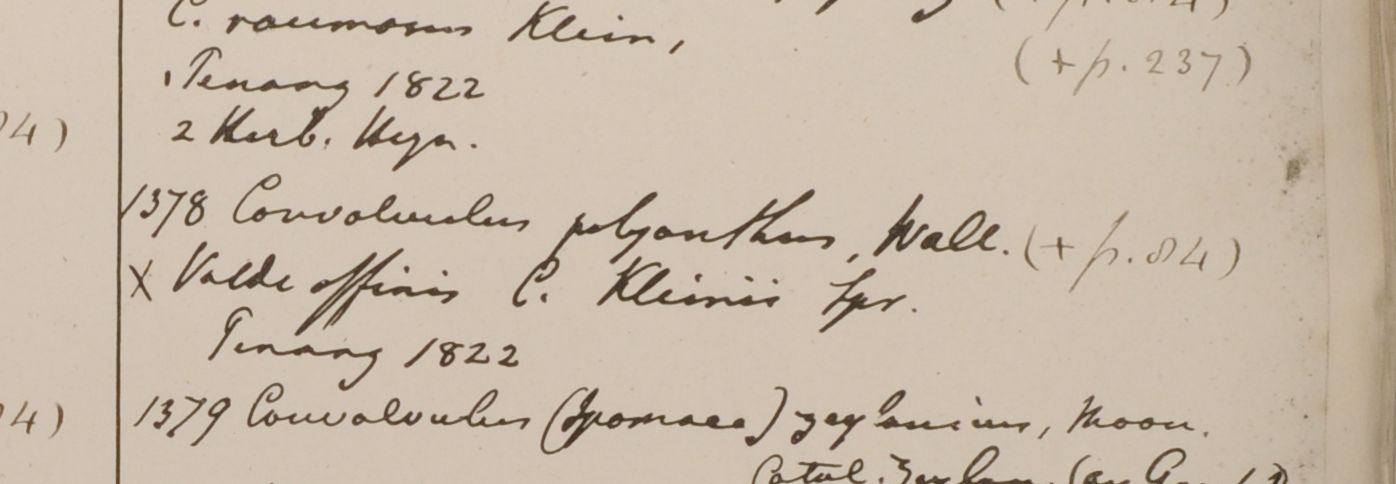 C. racemosus Klein,
Penang 1822
(+ p. 237)
2 Herb. Heyn.
84)
1378 Convolvulus polyanthus, Wall. (+ p. 84)
X Valde affinis C. Kleinii Spr.
Penang 1822
84)
1379 Convolvulus (Ipomaea) zeylanicus, Moon.
Catal. Zeylan.